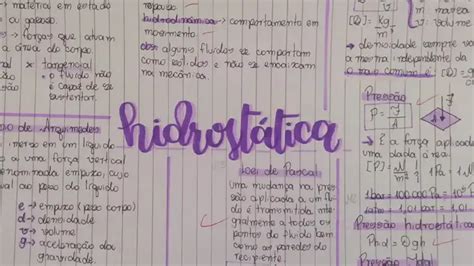 matéria em estado
ou gasoso
s → forças que atuam
a área do corpo
tangencial
o fluido não
é capaz de se
sustentar.
hidrodinâmica → comportamento em
movimento
obs: alguns fluidos se comportam
como sólidos e não se encaixam
na mecânica.
[D] = kg
m³
m → massa
v → volume
→ densidade sempre
a mesma independente da
Pressão
P = F
A
→ É a força aplicada
uma dada área.
[P] = N
m²
1 Pa = 1 N
1 bar = 100.000 Pa = 10⁵
1 atm = 1,01 bar = 1,01
Pressão hidrostática
Phd = dgh
hidrostática
po de Arquimedes
imerso em um líquido
a uma força vertical
denominada empuxo, cujo
igual ao peso do líquido
e → empuxo (peso corpo)
d → densidade
v → volume
g → aceleração da
gravidade.
Lei de Pascal
uma mudança na pres
são aplicada a um flui
do é transmitida inte
gralmente a todos os
pontos do fluido bem
como as paredes do
recipiente.